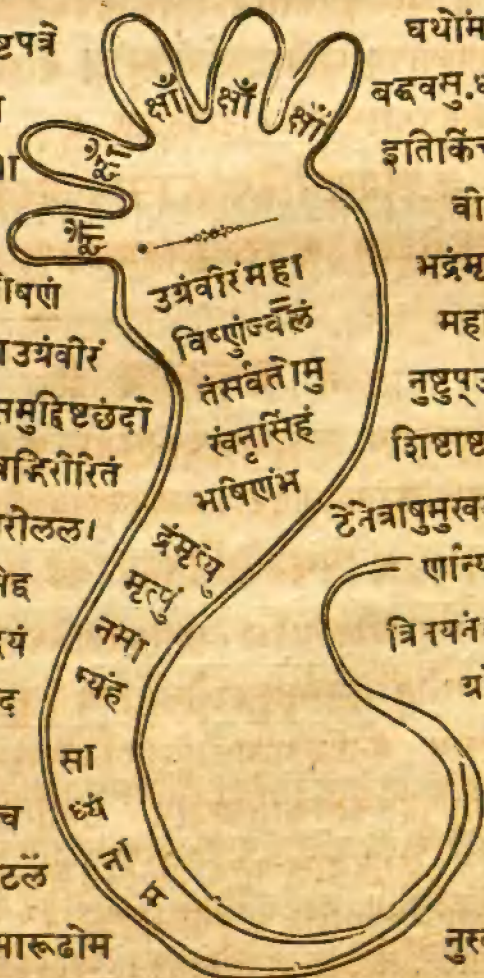 ष्टपत्रे
षणं
उग्रंवीरं
समुद्दिष्टछंदो
रीलल।
यं
द
च
टलं
मारूढोम
क्षाँ
क्षाँ
क्षाँ
उग्रंवीरंमहा
विष्णुंज्वलं
तंसर्वतोमु
खंनृसिंहं
भषिणंभ
द्रंमृत्यु
मृत्पुं
नमा
म्यंह
सा
ध्यं
ना
म
घथोंम
बद्धवमु.ध
इतिकिंच
वी
भद्रंमृ
महा
नुष्टुप्
शिष्टाष्ट
टेनेत्राषुमुख
र्णान्य
त्रिनयनं
ग्र
नुस्